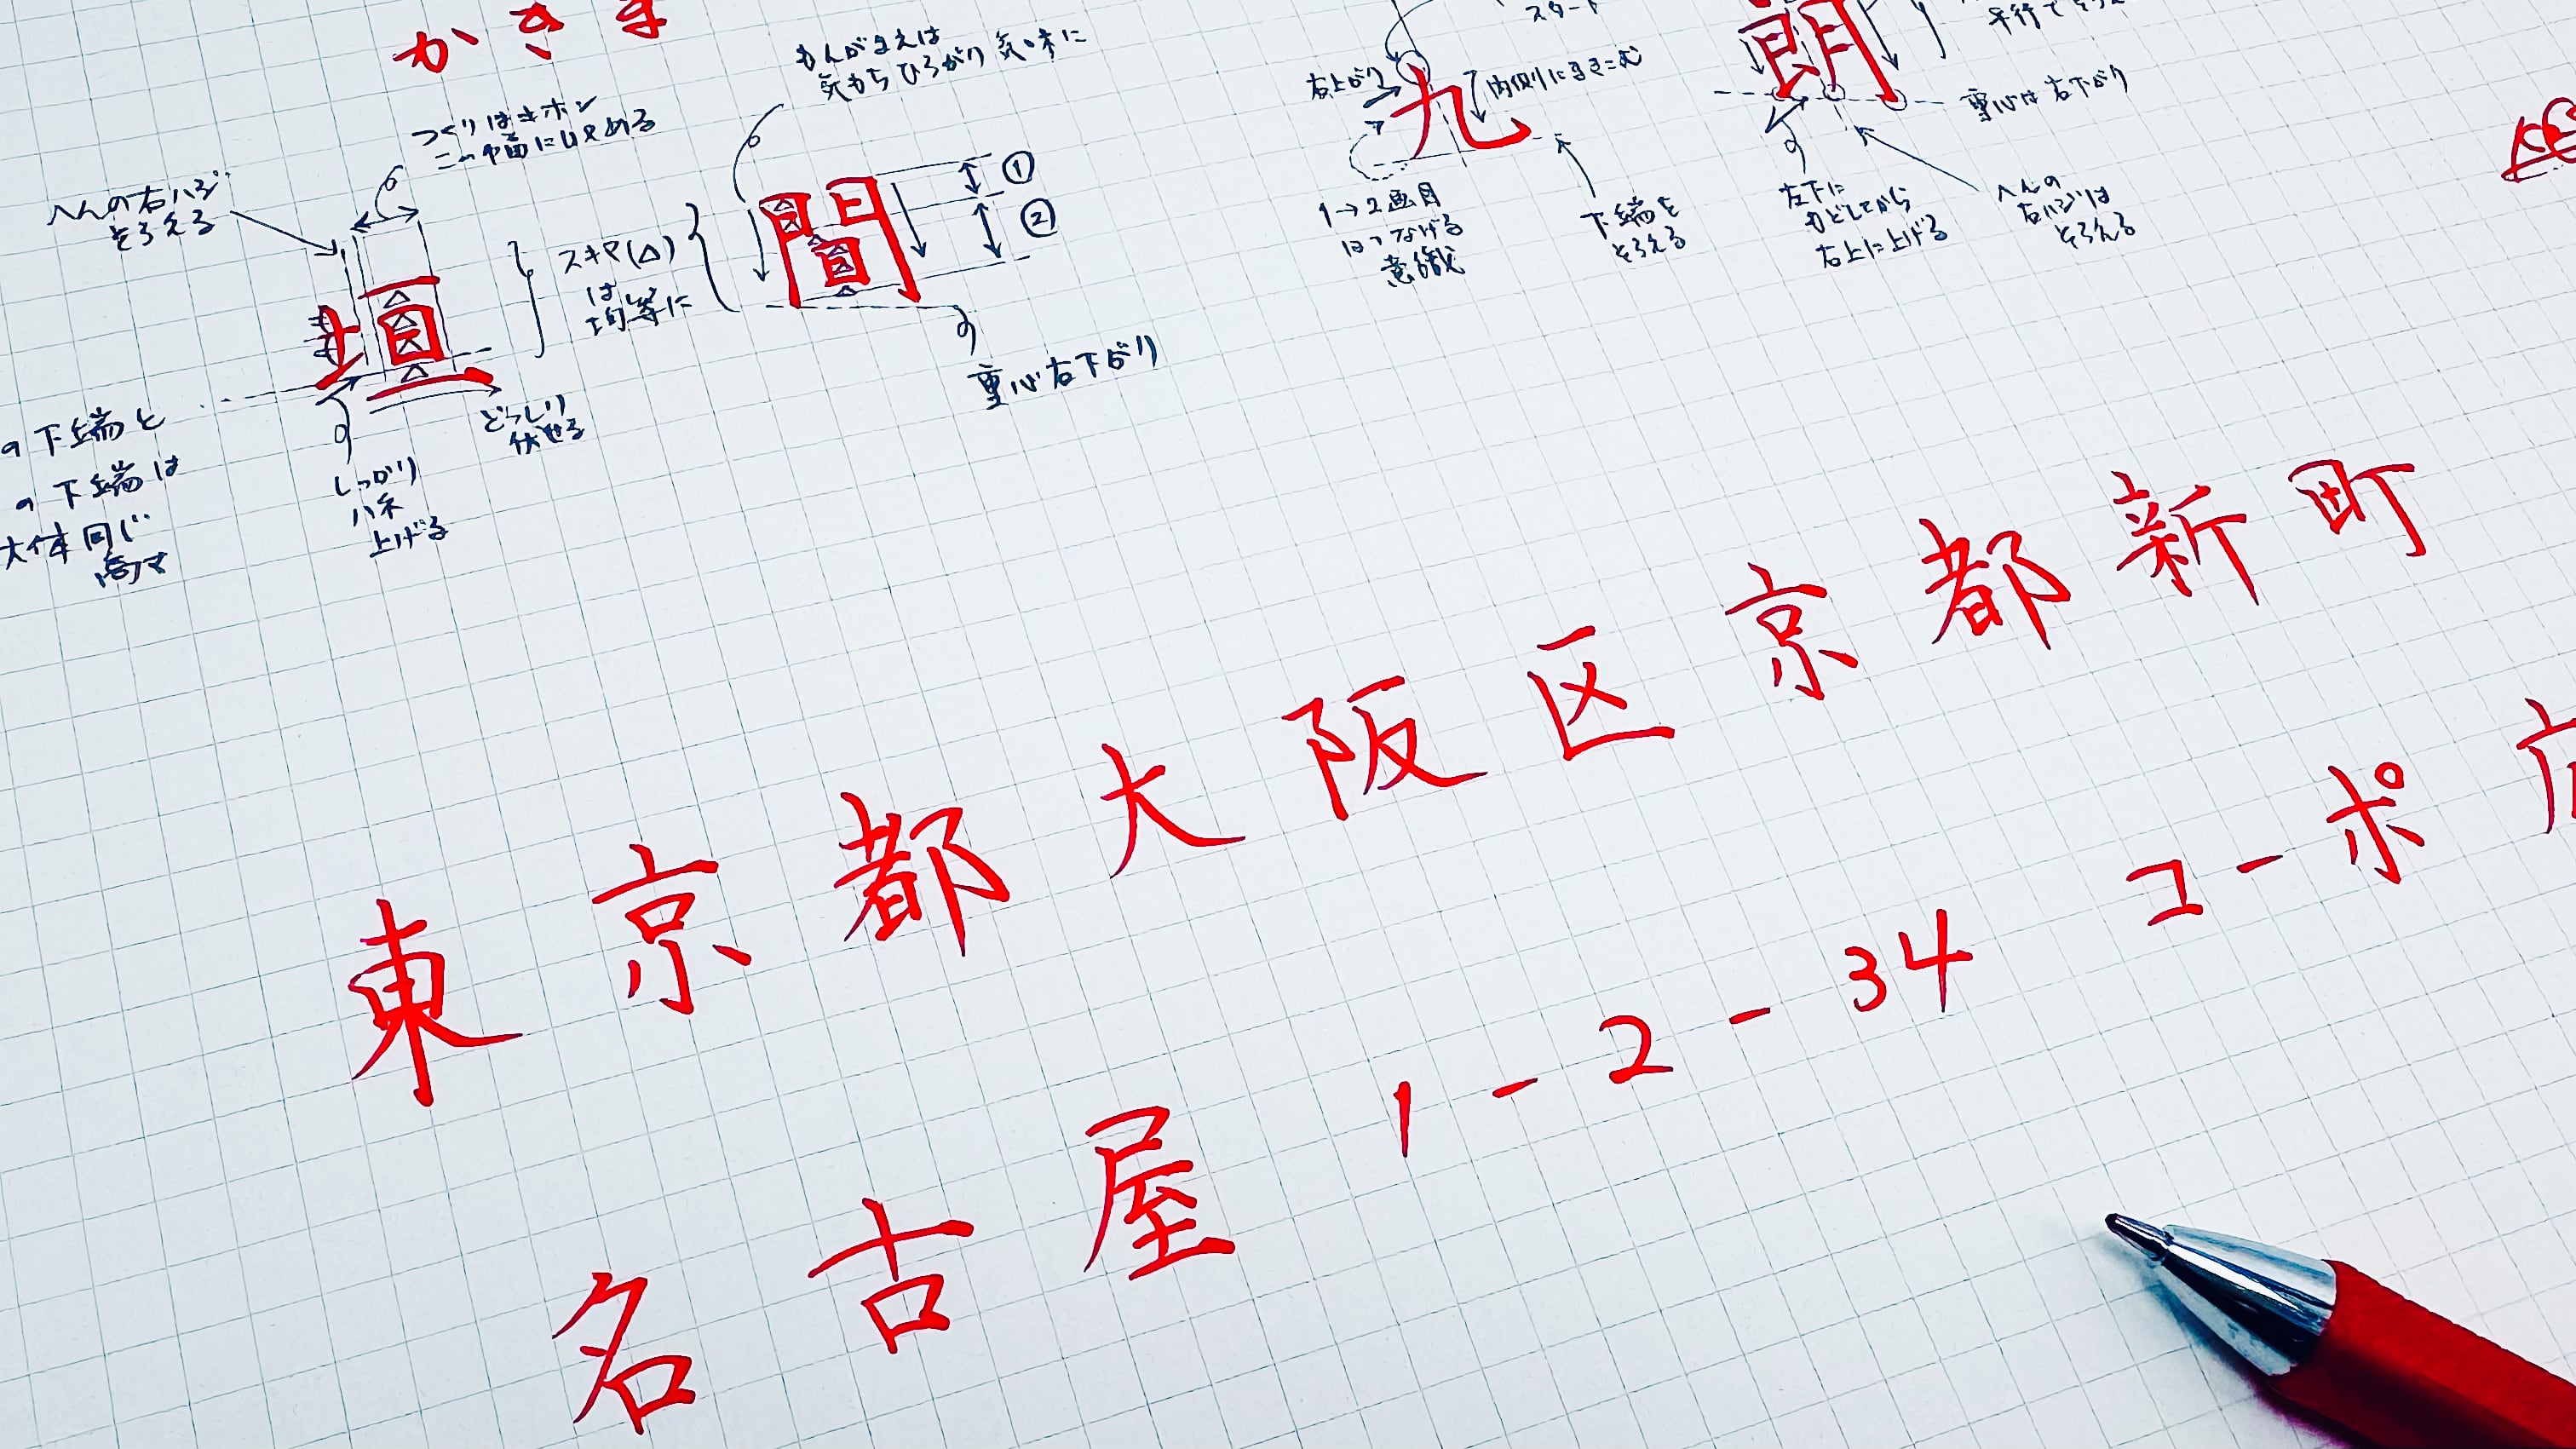 かきま
もんがまえは
気もちひろがり気味に
つくりはキホン
この中幅におさめる
へんの右ハジ
そろえる
壇
スキマ(△)
は
均等に
間
①
②
重心右下がり
の下端と
の下端は
大体同じ
高さ
しっかり
ハネ
上げる
どっしり
伏せる
スタート
右上がり
九
内側にまきこむ
1→2画目
はつなげる
意識
下端を
そろえる
朗
平行でそろえ
重心は右下がり
左下に
もどしてから
右上に上げる
へんの
右ハジは
そろえる
東京都大阪区京都新町
名古屋 1-2-34 コーポ広